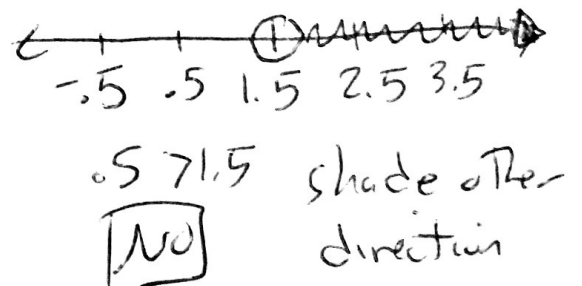 -.5 .5 1.5 2.5 3.5
.5 > 1.5 shade other
NO direction